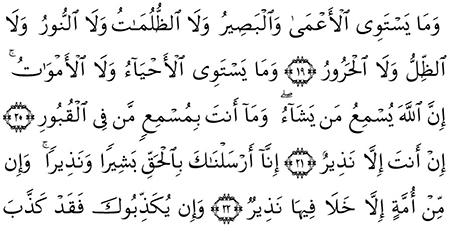 وَمَا يَسْتَوِى الْأَعْمَىٰ وَالْبَصِيرُ وَلَا الظُّلُمَـٰتُ وَلَا النُّورُ وَلَا
الظِّلُّ وَلَا الْحَرُورُ ﴿١٩﴾ وَمَا يَسْتَوِى الْأَحْيَآءُ وَلَا الْأَمْوَٰتُ ۚ
إِنَّ اللَّهَ يُسْمِعُ مَن يَشَآءُ ۖ وَمَآ أَنتَ بِمُسْمِعٍ مَّن فِى الْقُبُورِ ﴿٢٥﴾
إِنْ أَنتَ إِلَّا نَذِيرٌ ﴿٢١﴾ إِنَّآ أَرْسَلْنَـٰكَ بِالْحَقِّ بَشِيرًا وَنَذِيرًا ۚ وَإِن
مِّنْ أُمَّةٍ إِلَّا خَلَا فِيهَا نَذِيرٌ ﴿٢٢﴾ وَإِن يُكَذِّبُوكَ فَقَدْ كَذَّبَ